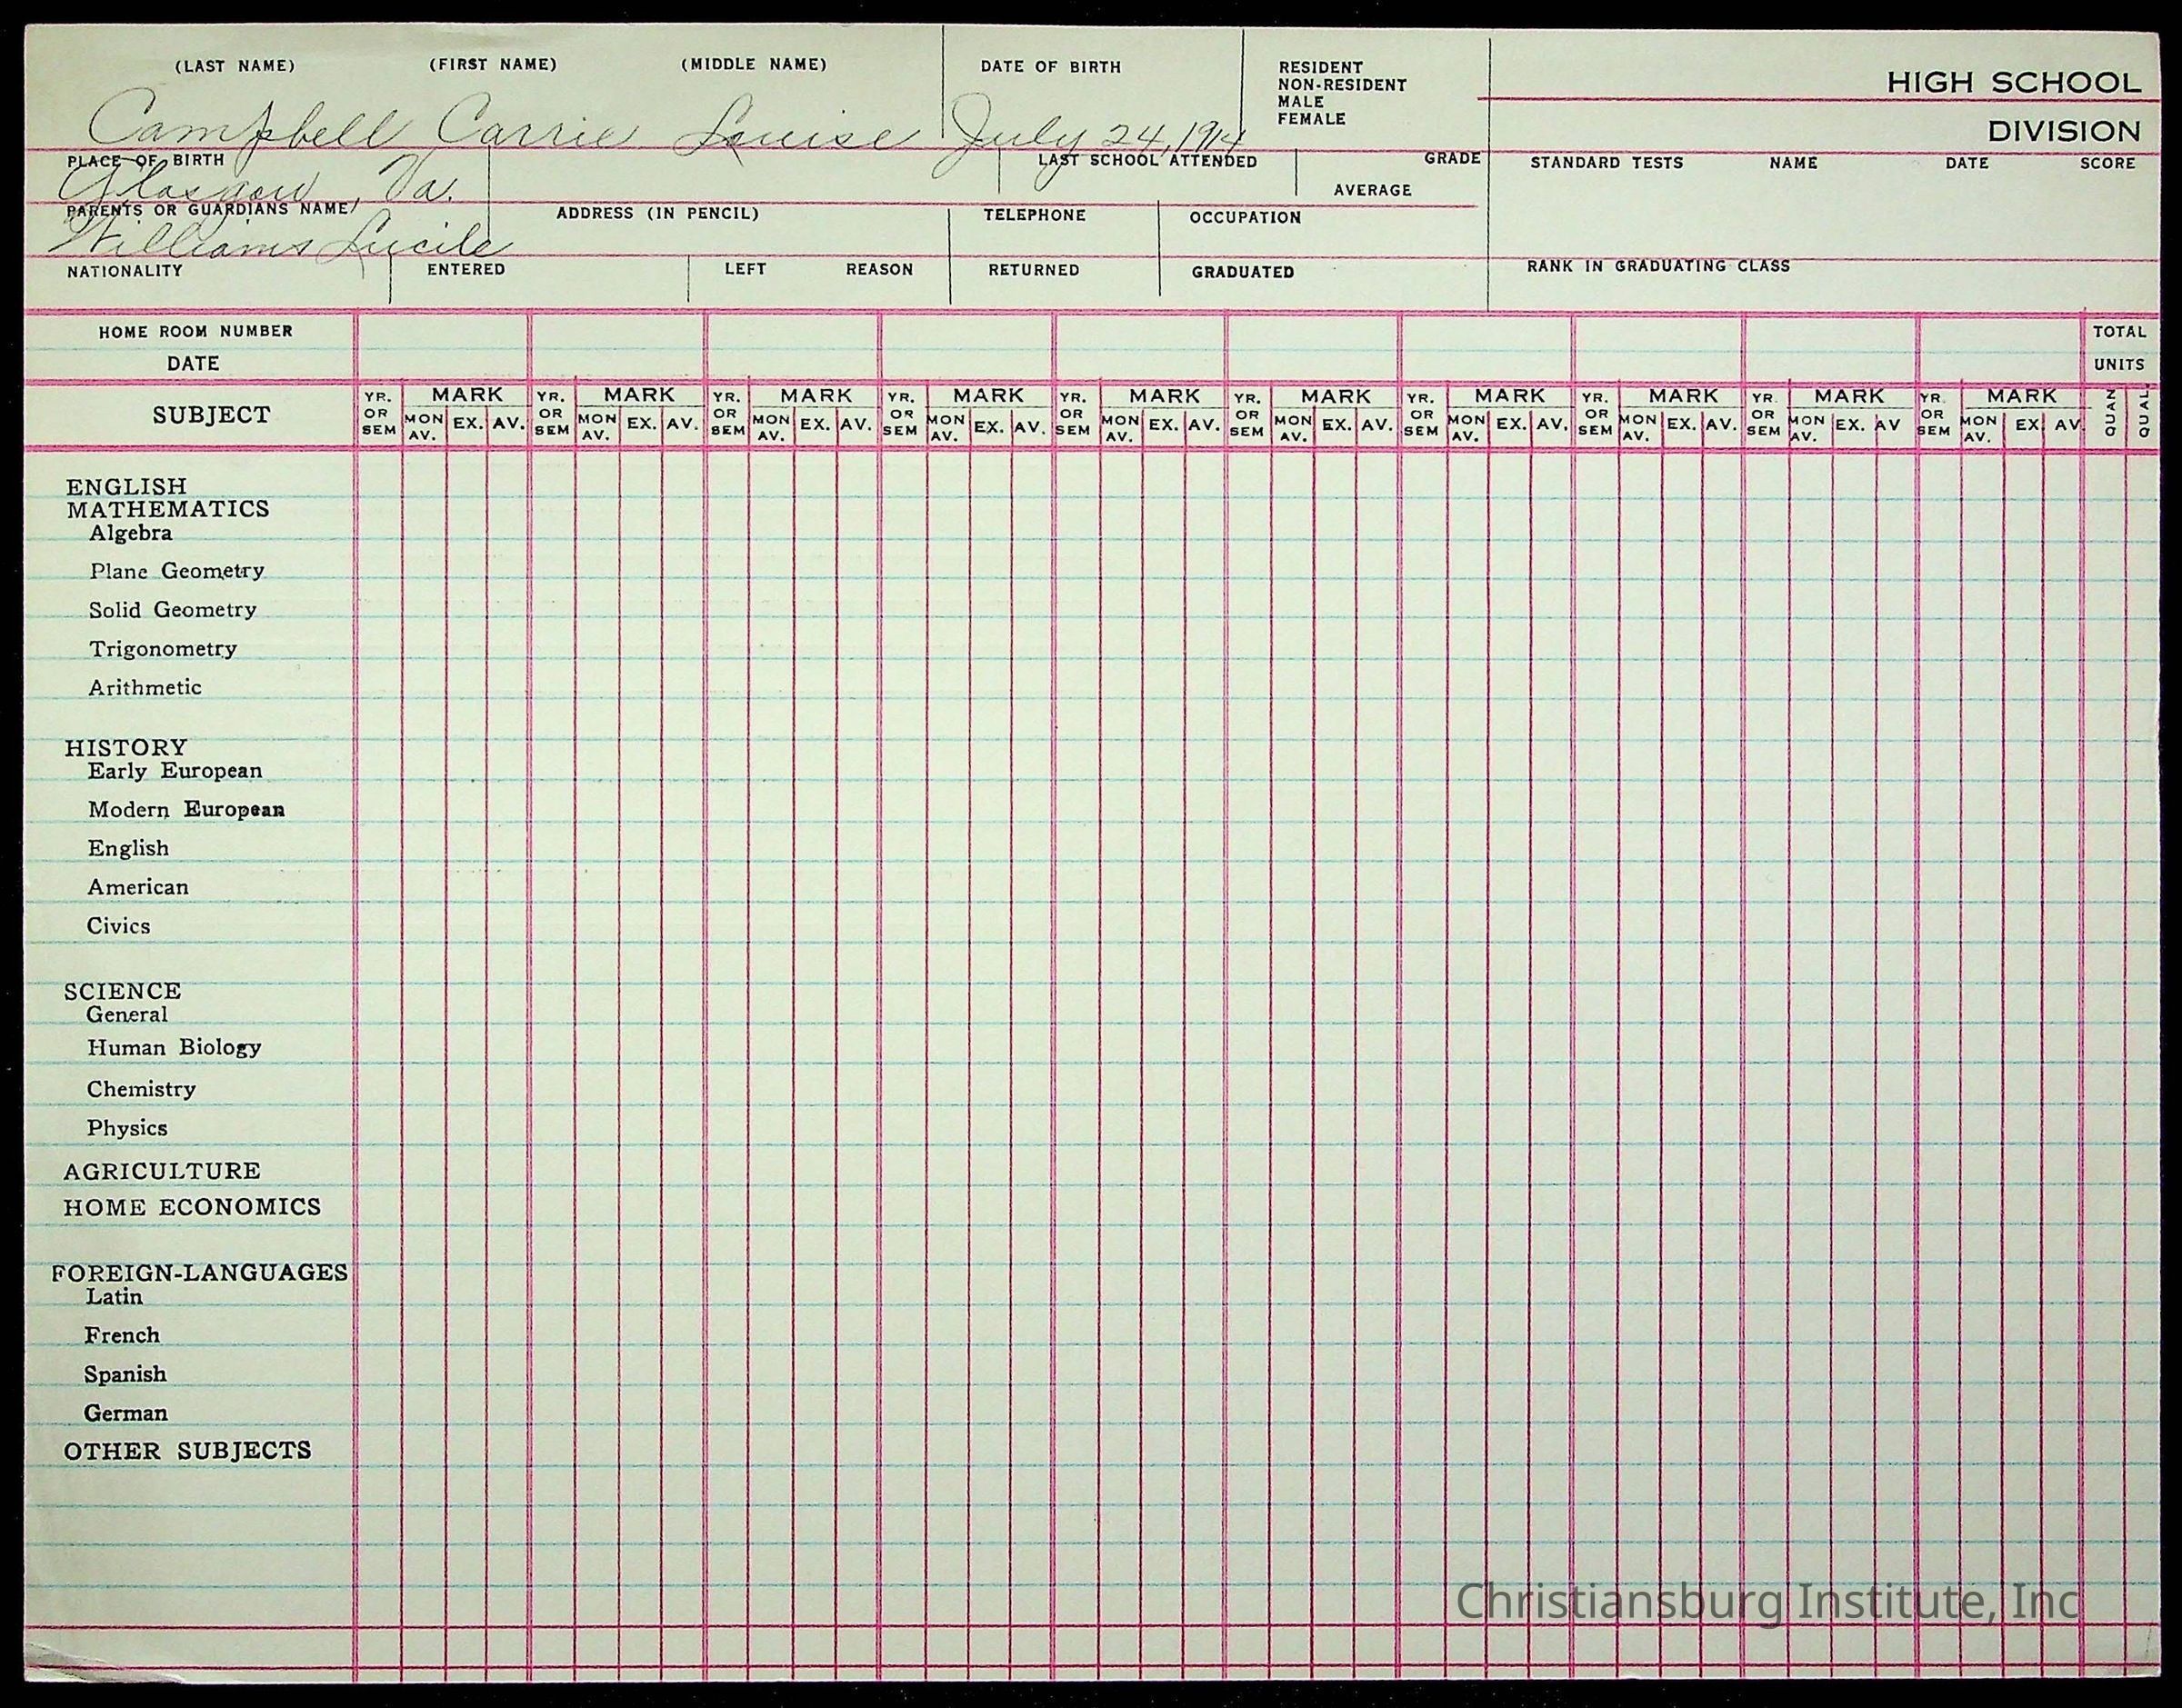 (LAST NAME) (FIRST NAME) (MIDDLE NAME) DATE OF BIRTH RESIDENT
NON-RESIDENT
MALE
FEMALE
HIGH SCHOOL
DIVISION
Campbell Carrie Louise July 24, 1914
PLACE OF BIRTH LAST SCHOOL ATTENDED GRADE STANDARD TESTS NAME DATE SCORE
Glasgow, Va. AVERAGE
PARENTS OR GUARDIANS NAME ADDRESS (IN PENCIL) TELEPHONE OCCUPATION
Williams Lucile
NATIONALITY ENTERED LEFT REASON RETURNED GRADUATED RANK IN GRADUATING CLASS
HOME ROOM NUMBER TOTAL
DATE UNITS
SUBJECT YR. OR SEM MARK MON AV. EX. AV. YR. OR SEM MARK MON AV. EX. AV. YR. OR SEM MARK MON AV. EX. AV. YR. OR SEM MARK MON AV. EX. AV. YR. OR SEM MARK MON AV. EX. AV. YR. OR SEM MARK MON AV. EX. AV. YR. OR SEM MARK MON AV. EX. AV. YR. OR SEM MARK MON AV. EX. AV. YR. OR SEM MARK MON AV. EX. AV YR. OR SEM MARK MON AV. EX AV QUAN QUAL.
ENGLISH
MATHEMATICS
Algebra
Plane Geometry
Solid Geometry
Trigonometry
Arithmetic
HISTORY
Early European
Modern European
English
American
Civics
SCIENCE
General
Human Biology
Chemistry
Physics
AGRICULTURE
HOME ECONOMICS
FOREIGN-LANGUAGES
Latin
French
Spanish
German
OTHER SUBJECTS
Christiansburg Institute, Inc